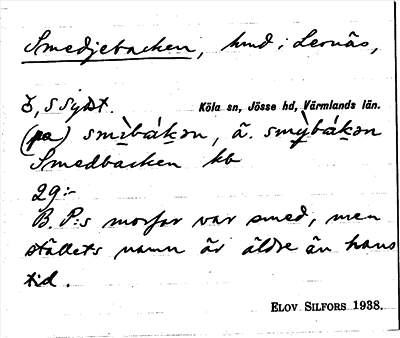 Smedjebacken, hmd i Lernäs,
Köla sn, Jösse hd, Värmlands län.
(på) smìbákən, ä. smỳbákən
Smedbacken kb
29:-
B. P:s morfar var smed, men
ställets namn är äldre än hans
tid.
ELOV SILFORS 1938.